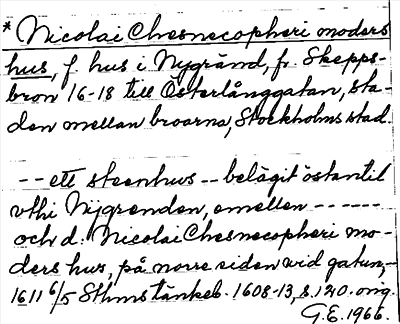 * Nicolai Chesnecopheri moders
hus, f. hus i Nygränd, fr. Skepps-
bron 16-18 till Österlånggatan, sta-
den mellan broarna, Stockholms stad.
-- ett steenhus -- belägit östantil
vthi Nijgrenden, emellen ------
och d: Nicolai Chesnecopheri mo-
ders hus, på norre siden wid gatun,-
1611 6/5 Sthms tänkeb. 1608-13, s. 120. orig.
G.E. 1966.